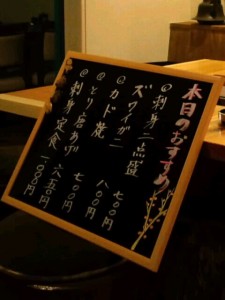 本日のおすすめ
刺身二点盛
ズワイガニ 七〇〇円
カド焼 八〇〇円
とり唐あげ 七〇〇円
刺身定食 一一〇〇円